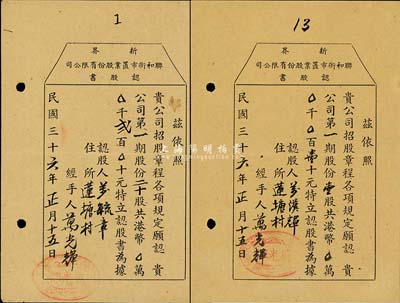 1
新界
司公限有份股業置市街和聯
書股認
茲依照
貴公司招股章程各項規定願認 貴
公司第一期股份二十股共港幣0萬
0千貳百0十元特立認股書為據
認股人
住所 蓮塘村
經手人 萬光輝
民國三十六年正月十五日
13
界新
司公限有份股業置市街和聯
書股認
茲依照
貴公司招股章程各項規定願認 貴
公司第一期股份壹股共港幣0萬
0千0百壹十元特立認股書為據
認股人
住所 蓮塘村
經手人 萬光輝
民國三十六年正月十五日